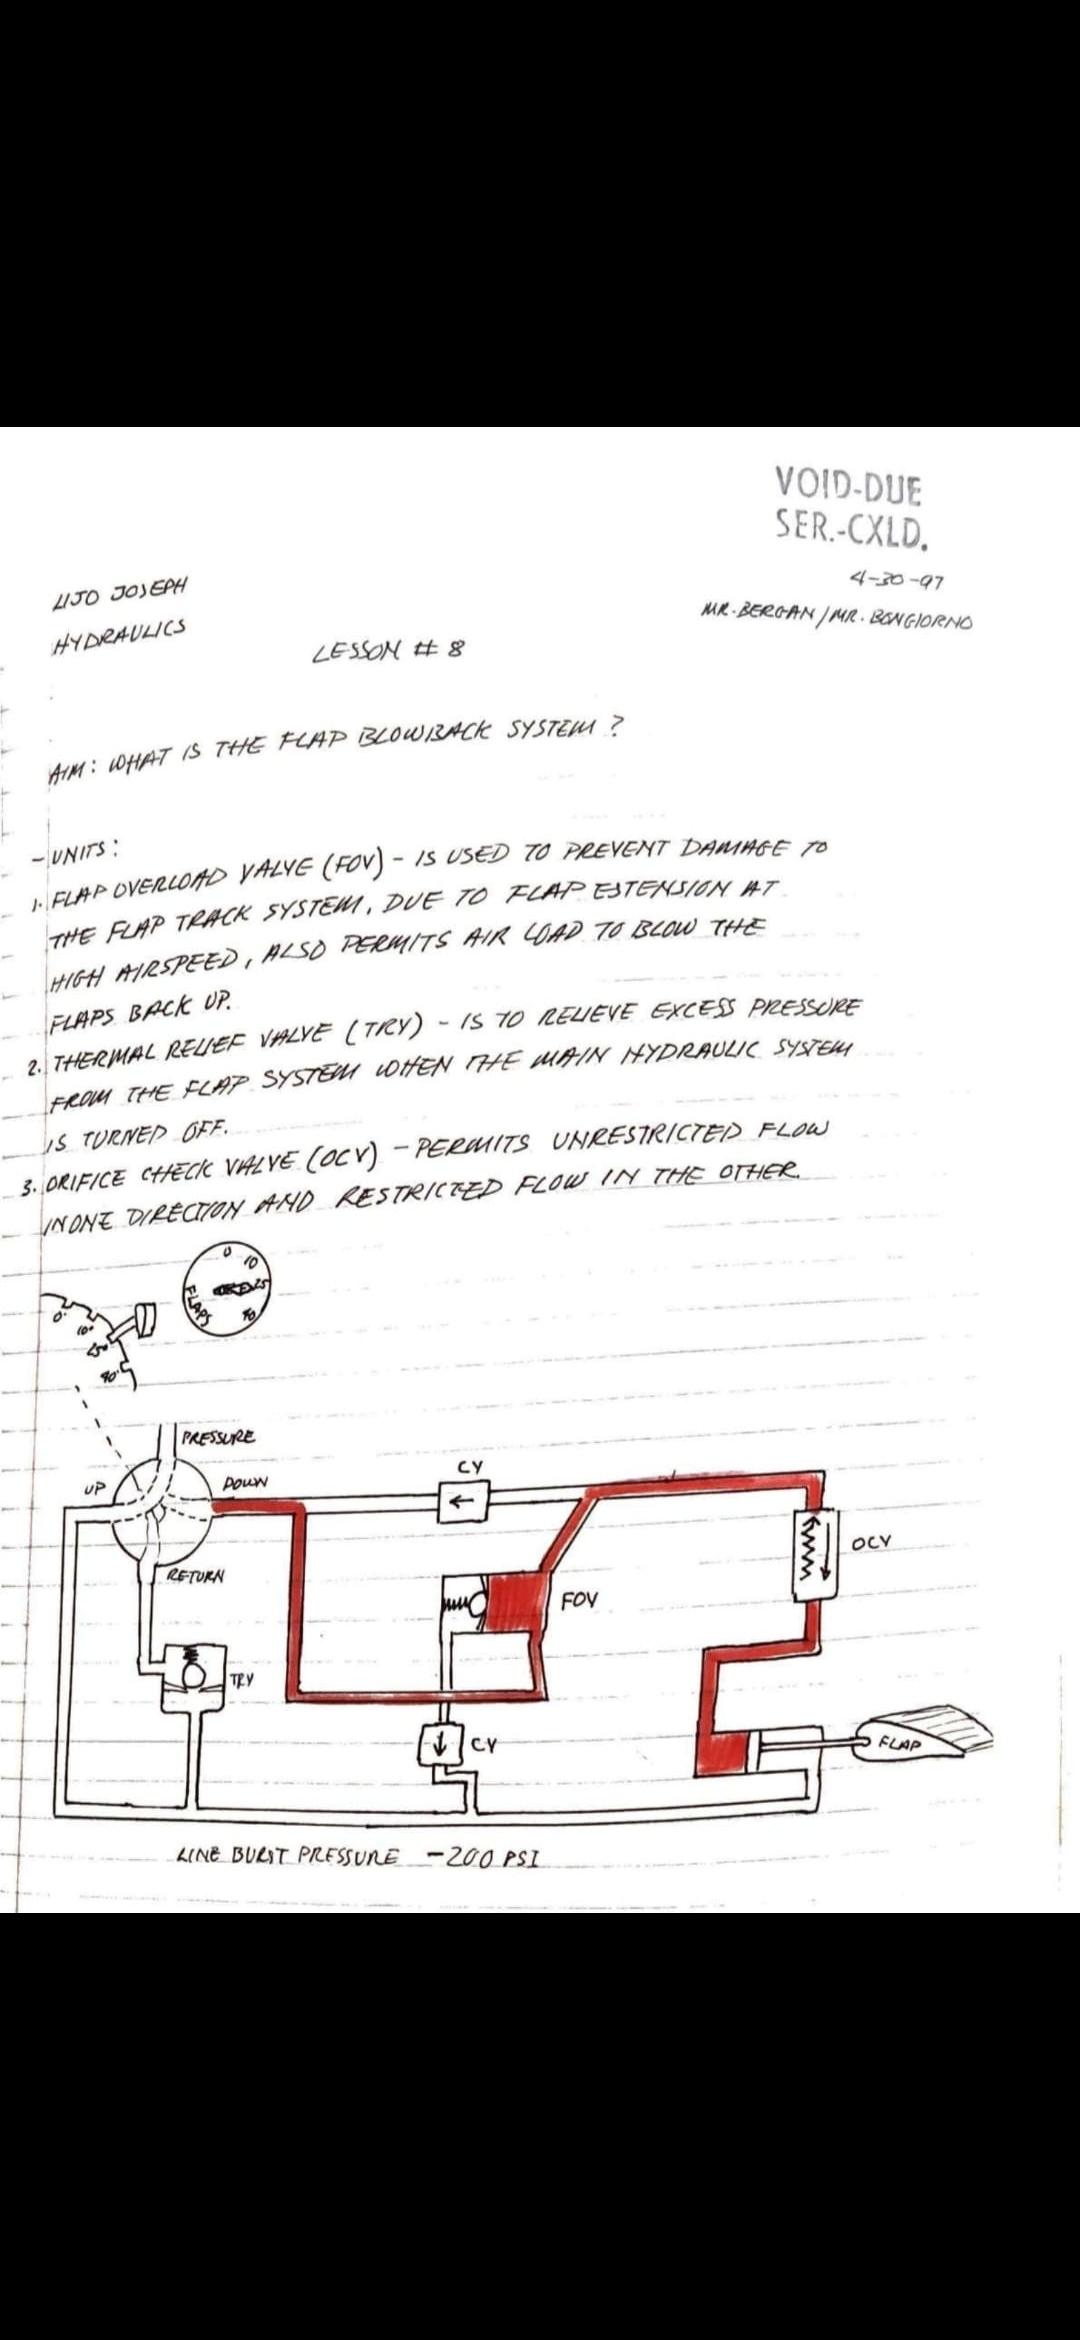 VOID-DUE
SER.-CXLD.
4-30-97
LIJO JOSEPH
MR. BERGAN / MR. BONGIORNO
HYDRAULICS
LESSON # 8
AIM: WHAT IS THE FLAP BLOWBACK SYSTEM ?
- UNITS:
1. FLAP OVERLOAD VALVE (FOV) - IS USED TO PREVENT DAMAGE TO
THE FLAP TRACK SYSTEM, DUE TO FLAP EXTENSION AT
HIGH AIRSPEED, ALSO PERMITS AIR LOAD TO BLOW THE
FLAPS BACK UP.
2. THERMAL RELIEF VALVE (TRV) - IS TO RELIEVE EXCESS PRESSURE
FROM THE FLAP SYSTEM WHEN THE MAIN HYDRAULIC SYSTEM
IS TURNED OFF.
3. ORIFICE CHECK VALVE (OCV) - PERMITS UNRESTRICTED FLOW
IN ONE DIRECTION AND RESTRICTED FLOW IN THE OTHER.
0
10
25
40
FLAPS
0°
10°
25°
40°
PRESSURE
UP
DOWN
CV
OCV
RETURN
FOV
TRV
CV
FLAP
LINE BURST PRESSURE - 200 PSI